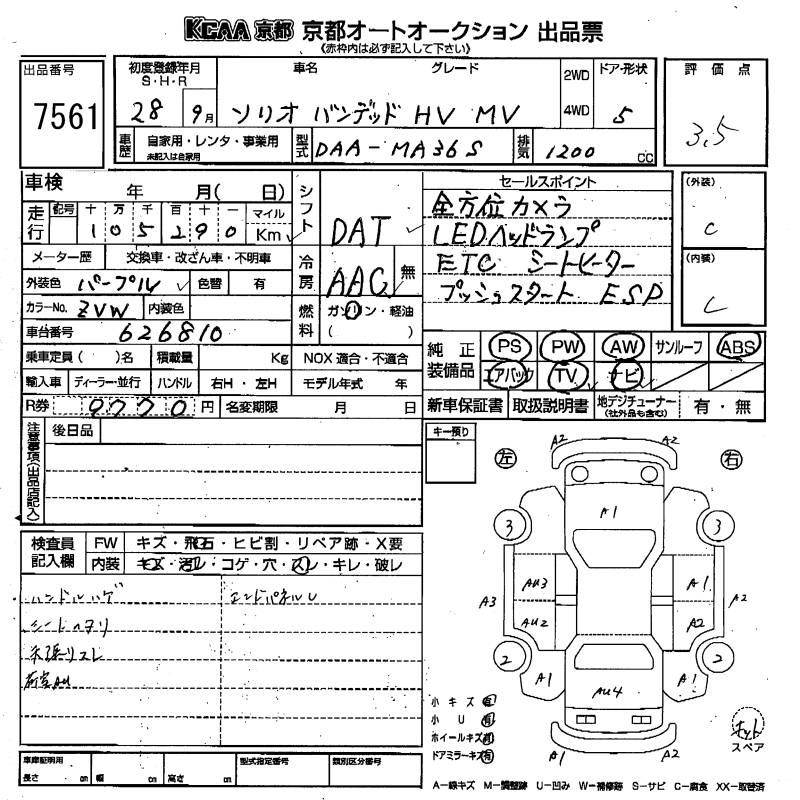 KCAA 京都 京都オートオークション 出品票
《赤枠内は必ず記入して下さい》
出品番号
7561
初度登録年月
S・H・R
28 9月
車名 グレード
ソリオ バンデッド HV MV
2WD
4WD
ドア・形状
5
評価点
3.5
車歴
自家用・レンタ・事業用
未記入は自家用
型式
DAA-MA36S
排気
1200 CC
車検 年 月( 日)
走行 記号 十 万 千 百 十 一 マイル
1 0 5 2 9 0 Km
メーター歴 交換車・改ざん車・不明車
外装色 パープル 色替 有
カラーNo. ZVW 内装色
車台番号 626810
乗車定員( )名 積載量 Kg
輸入車 ディーラー・並行 ハンドル 右H・左H
R券 9770 円 名変期限 月 日
シフト DAT
冷房 AAC 無
燃料 ガソリン・軽油
( )
NOX 適合・不適合
モデル年式 年
セールスポイント
全方位カメラ
LEDヘッドランプ
ETC シートヒーター
プッシュスタート ESP
(外装)
C
(内装)
C
純正装備品
PS PW AW サンルーフ ABS
エアバック TV ナビ
新車保証書 取扱説明書 地デジチューナー
(社外品も含む)
有・無
注意事項(出品店記入)
後日品
キー預り
検査員記入欄
FW キズ・飛石・ヒビ割・リペア跡・X要
内装 キズ・汚レ・コゲ・穴・スレ・キレ・破レ
ハンドルハゲ エンドパネルU
シートヘタリ
天張リスレ
荷室AU
左 右
A2 A2
A1
3 3
AU3 A1
A3 A2
AU2 A2
2 2
A1 A1
AU4
A1 A2
小キズ 有
小U 有
ホイールキズ 有
ドアミラーキズ 有
スペア
車庫証明用
長さ cm 幅 cm 高さ cm
型式指定番号
類別区分番号
A−線キズ M−調整跡 U−凹み W−補修跡 S−サビ C−腐食 XX−交換済